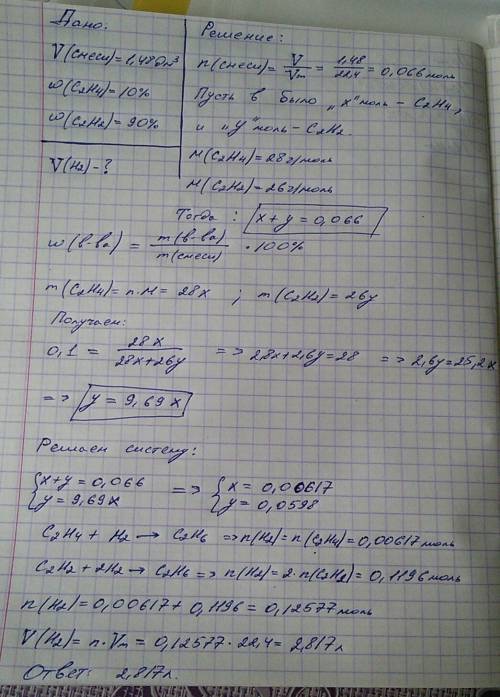 Дано:
V(смеси)=1,48дм³
w(C₂H₄)=10%
w(C₂H₂)=90%
V(H₂)-?
Решение:
n(смеси)= V/Vm = 1,48/22,4 = 0,066 моль
Пусть в было „x" моль - C₂H₄,
и „y" моль - C₂H₂.
M(C₂H₄)=28г/моль
M(C₂H₂)=26г/моль
Тогда : x+y=0,066
w(в-ва) = m(в-ва)/m(смеси) · 100%
m(C₂H₄)=n·M=28x ; m(C₂H₂)=26y
Получаем:
0,1 = 28x/28x+26y => 2,8x+2,6y=28 => 2,6y=25,2x
=> y=9,69x
Решаем систему:
{x+y=0,066 => {x=0,00617
{y=9,69x {y=0,0598
C₂H₄ + H₂ → C₂H₆ => n(H₂)=n(C₂H₄)=0,00617моль
C₂H₂+2H₂ → C₂H₆ => n(H₂)=2·n(C₂H₂)=0,1196моль
n(H₂)=0,00617+0,1196=0,12577моль
V(H₂)=n·Vm=0,12577·22,4=2,817л
Ответ: 2,817л.